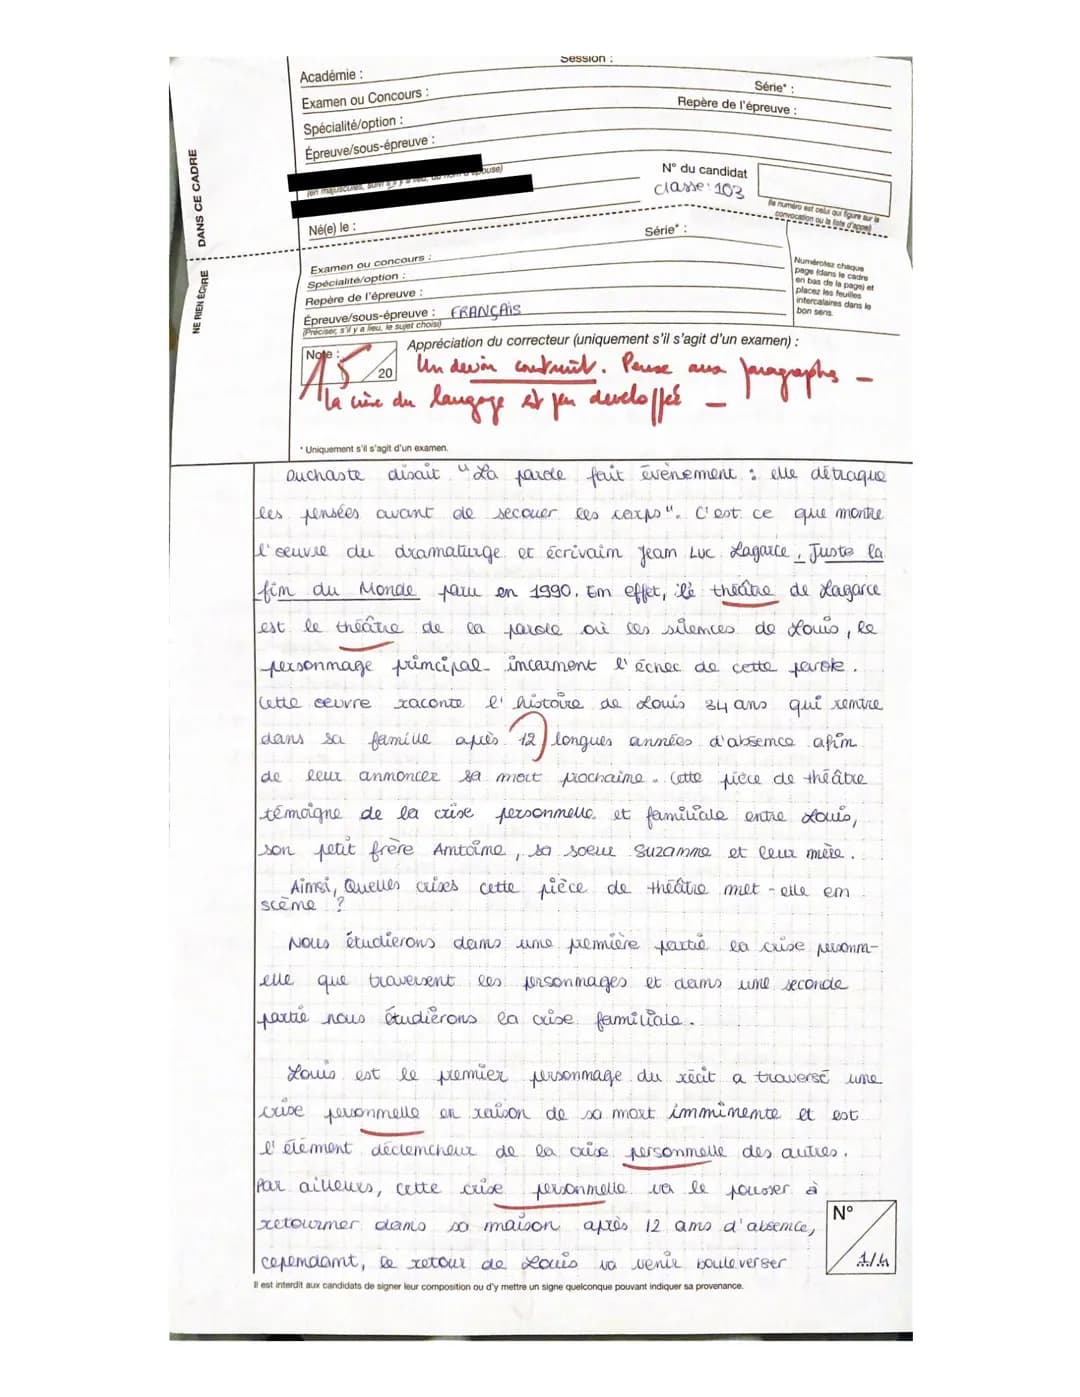 Session :
Académie :
Série* :
Examen ou Concours :
Repère de l'épreuve :
Spécialité/option :
Épreuve/sous-épreuve :
N° du candidat
classe: 103
(le numéro est celui qui figure sur la convocation ou la liste d'appel)
DANS CE CADRE
Né(e) le :
Série* :
Examen ou concours :
Spécialité/option :
Repère de l'épreuve :
Épreuve/sous-épreuve : FRANÇAIS
(Préciser, s'il y a lieu, le sujet choisi)
Numérotez chaque
page (dans le cadre
en bas de la page) et
placez les feuilles
intercalaires dans le
bon sens.
NE RIEN ÉCRIRE
Appréciation du correcteur (uniquement s'il s'agit d'un examen) :
Note :
15
20
Un devoir construit. Pense aux paragraphes -
la crise du langage est peu développée -
* Uniquement s'il s'agit d'un examen.
Duchaste disait "La parole fait évènement : elle détraque
les pensées avant de secouer les corps". C'est ce que montre
l'oeuvre du dramaturge et écrivain Jean Luc Lagarce, Juste la
fin du Monde paru en 1990. En effet, le théâtre de Lagarce
est le théâtre de la parole où les silences de Louis, le
personnage principal incarnent l'échec de cette parole.
Cette oeuvre raconte l'histoire de Louis 34 ans qui rentre
dans sa famille après 12 longues années d'absence afin
de leur annoncer sa mort prochaine. Cette pièce de théâtre
témoigne de la crise personnelle et familiale entre Louis,
son petit frère Antoine, sa soeur Suzanne et leur mère.
Ainsi, Quelles crises cette pièce de théâtre met-elle en
scène ?
Nous étudierons dans une première partie la crise personn-
elle que traversent les personnages et dans une seconde
partie nous étudierons la crise familiale.
Louis est le premier personnage du récit a traversé une
crise personnelle en raison de sa mort imminente et est
l'élément déclencheur de la crise personnelle des autres.
Par ailleurs, cette crise personnelle va le pousser à
retourner dans sa maison après 12 ans d'absence,
cependant, le retour de Louis va venir bouleverser
N°
1/4
Il est interdit aux candidats de signer leur composition ou d'y mettre un signe quelconque pouvant indiquer sa provenance.